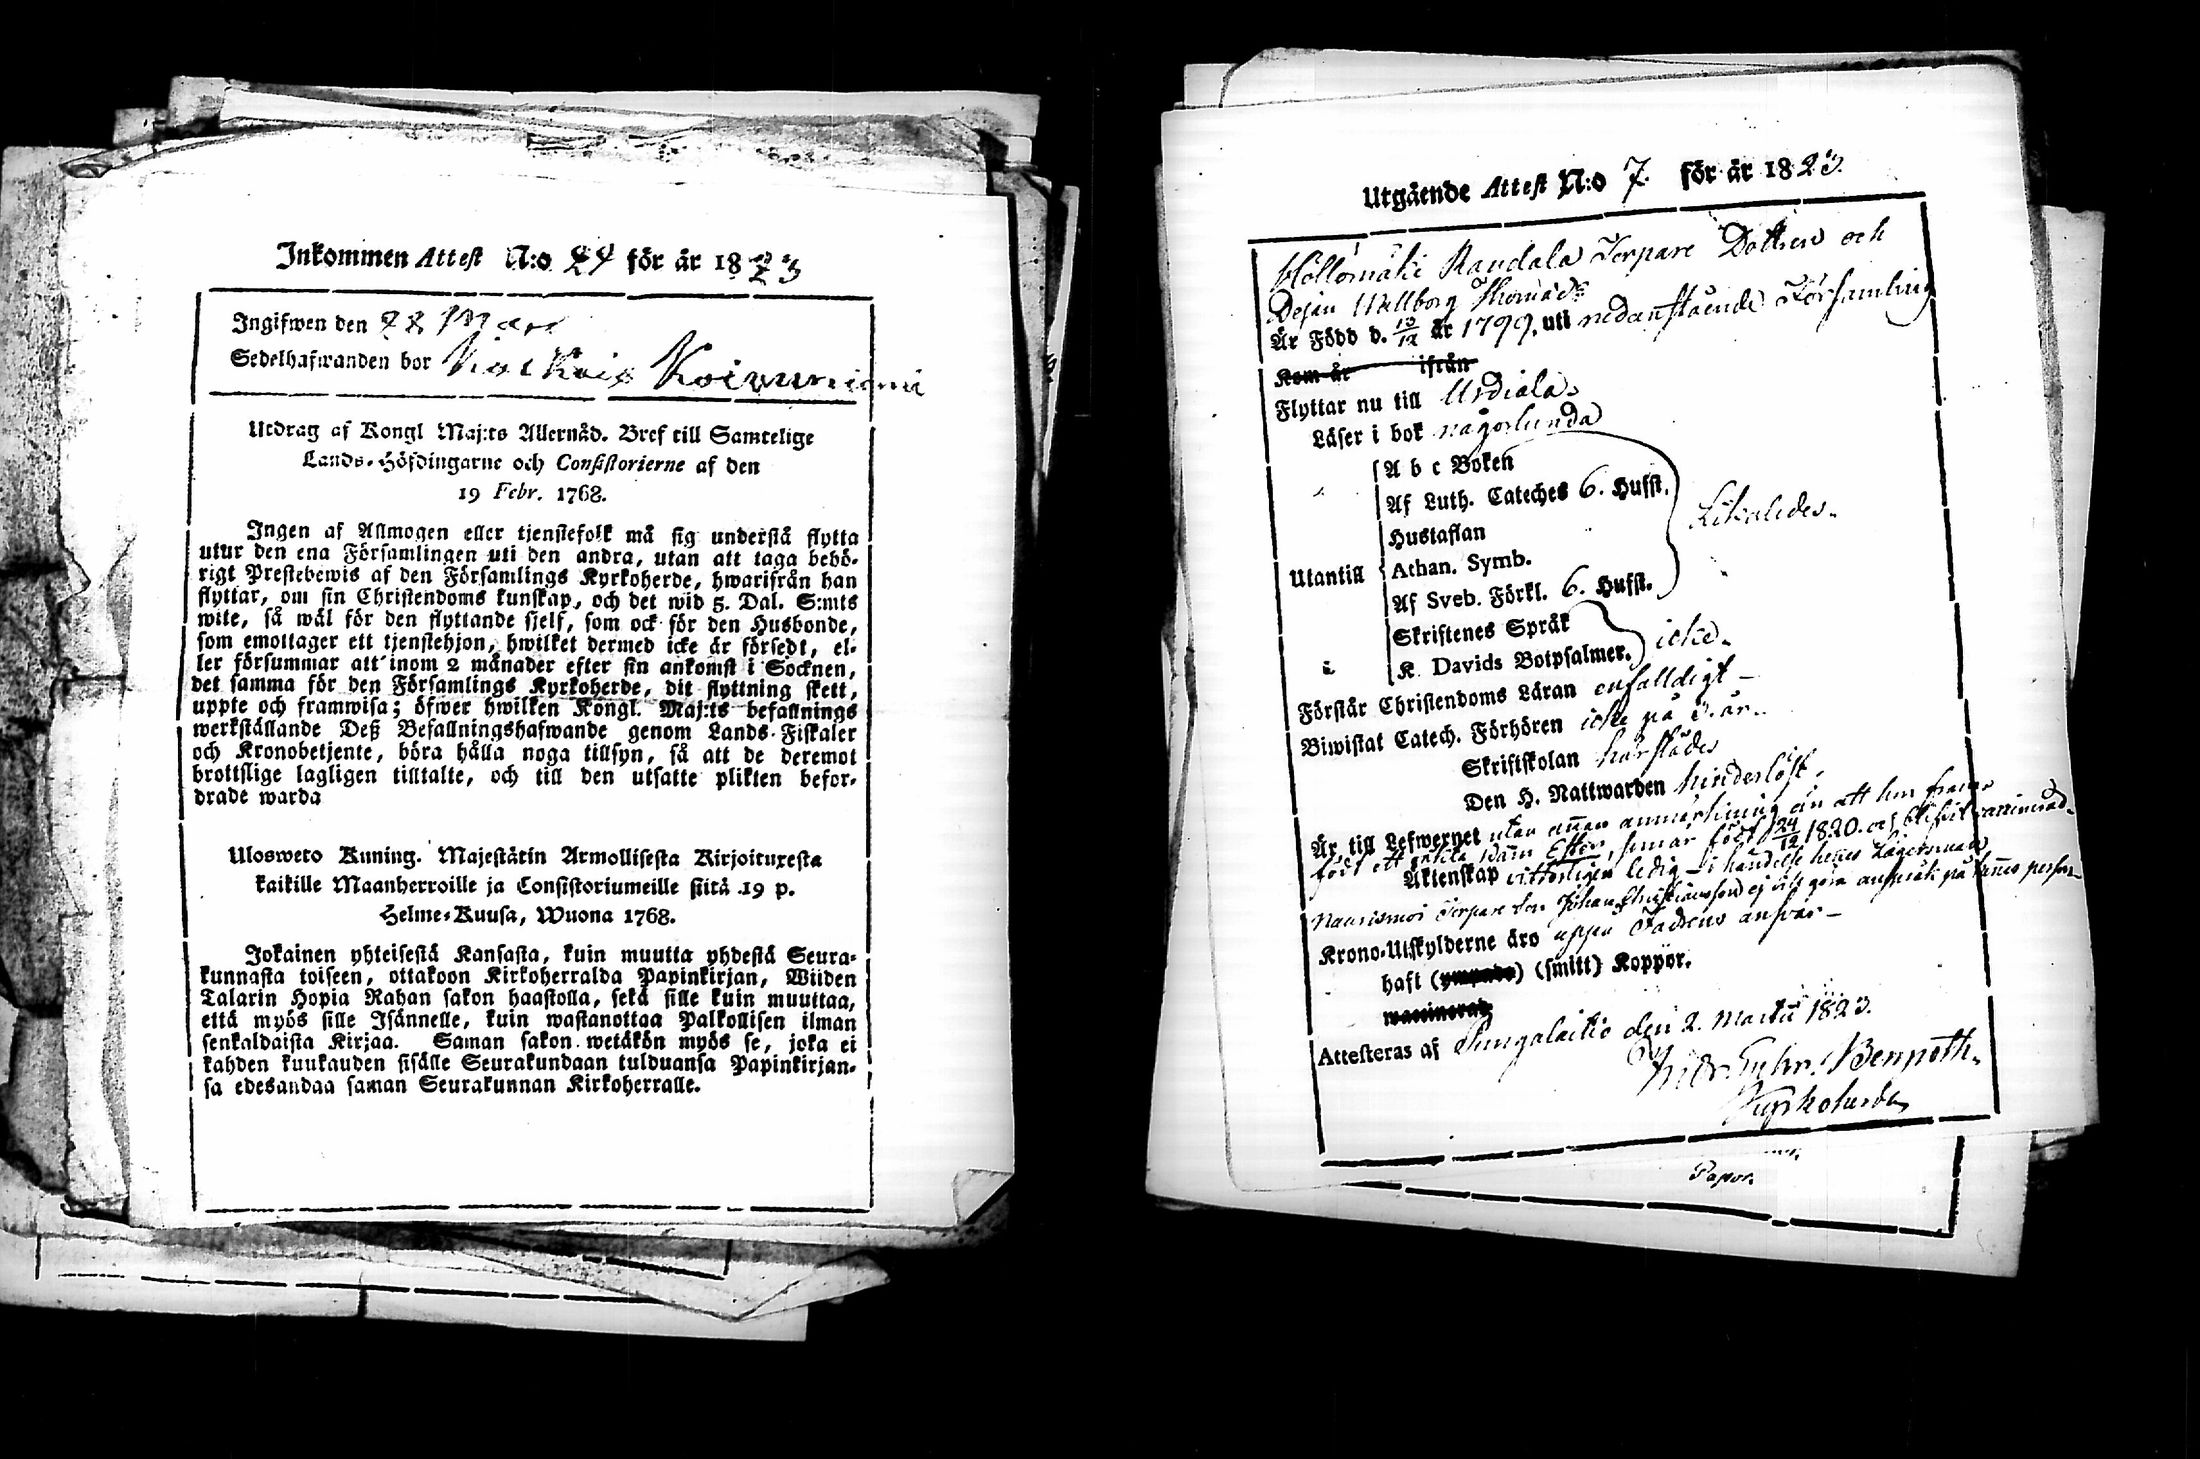 Inkommen Attest N:o 24 för år 1823
Ingifwen den 28 Mars
Sedelhafwanden bor Koivuniemi
Utdrag af Kongl Maj:ts Allernåd. Bref till Samtelige
Lands-Höfdingarne och Consistorierne af den
19 Febr. 1768.
Ingen af Allmogen eller tjenstefolk må sig understå flytta
utur den ena Församlingen uti den andra, utan att taga behö-
rigt Prestebewis af den Församlings Kyrkoherde, hwarifrån han
flyttar, om sin Christendoms kunskap, och det wid 5. Dal. S:mts
wite, så wäl för den flyttande sjelf, som ock för den Husbonde,
som emottager ett tjenstehjon, hwilket dermed icke är försedt, el-
ler försummar att inom 2 månader efter sin ankomst i Socknen,
det samma för den Församlings Kyrkoherde, dit flyttning skett,
uppte och framwisa; öfwer hwilken Kongl. Maj:ts befallnings
werkställande Deß Befallningshafwande genom Lands-Fiskaler
och Kronobetjente, böra hålla noga tillsyn, så att de deremot
brottslige lagligen tilltalte, och till den utsatte plikten befor-
drade warda
Ulosweto Kuning. Majestätin Armollisesta Kirjoituxesta
kaikille Maanherroille ja Consistoriumeille siitä 19 p.
Helme-Kuusa, Wuona 1768.
Jokainen yhteisestä Kansasta, kuin muutta yhdestä Seura-
kunnasta toiseen, ottakoon Kirkoherralda Papinkirjan, Wiiden
Talarin Hopia Rahan sakon haastolla, sekä sille kuin muuttaa,
että myös sille Isännelle, kuin wastanottaa Palkollisen ilman
senkaldaista Kirjaa. Saman sakon wetäkön myös se, joka ei
kahden kuukauden sisälle Seurakundaan tulduansa Papinkirjan-
sa edesandaa saman Seurakunnan Kirkoherralle.
Utgående Attest N:o 7. för år 1823.
Höllömäki Raudala Torpare Dottren och
Dejan Wallborg Thomäd:r
Är Född d. 10/12 år 1799. uti nedanstående Församling
Kom år ifrån
Flyttar nu till Urdiala.
Läser i bok någorlunda
A b c Boken
Af Luth. Cateches 6. Hufst.
Hustaflan
Likaledes.
Athan. Symb.
Utantill
Af Sveb. Förkl. 6. Hufst.
Skriftenes Språk
icke.
K. Davids Botpsalmer.
Förstår Christendoms Läran enfalldigt
Biwistat Catech. Förhören icke på år.
Skriftskolan härstädes
Den H. Nattwarden hinderlöst.
Är till Lefwernet utan annan anmärkning än att hon framfödt ett
barn Ester, som är född 24/12 1820. och blifvit
Äktenskap ledig
Torpare Son Johan ej vill göra anspråk på hennes person
Krono-Utskylderne äro uppå Fadrens ansvar
haft (ympade) (smitt) Koppor.
waccinerad
Attesteras af Pungalaitio den 2. Martii 1823.
Bennoth.
Kyrkoherde
Papor.